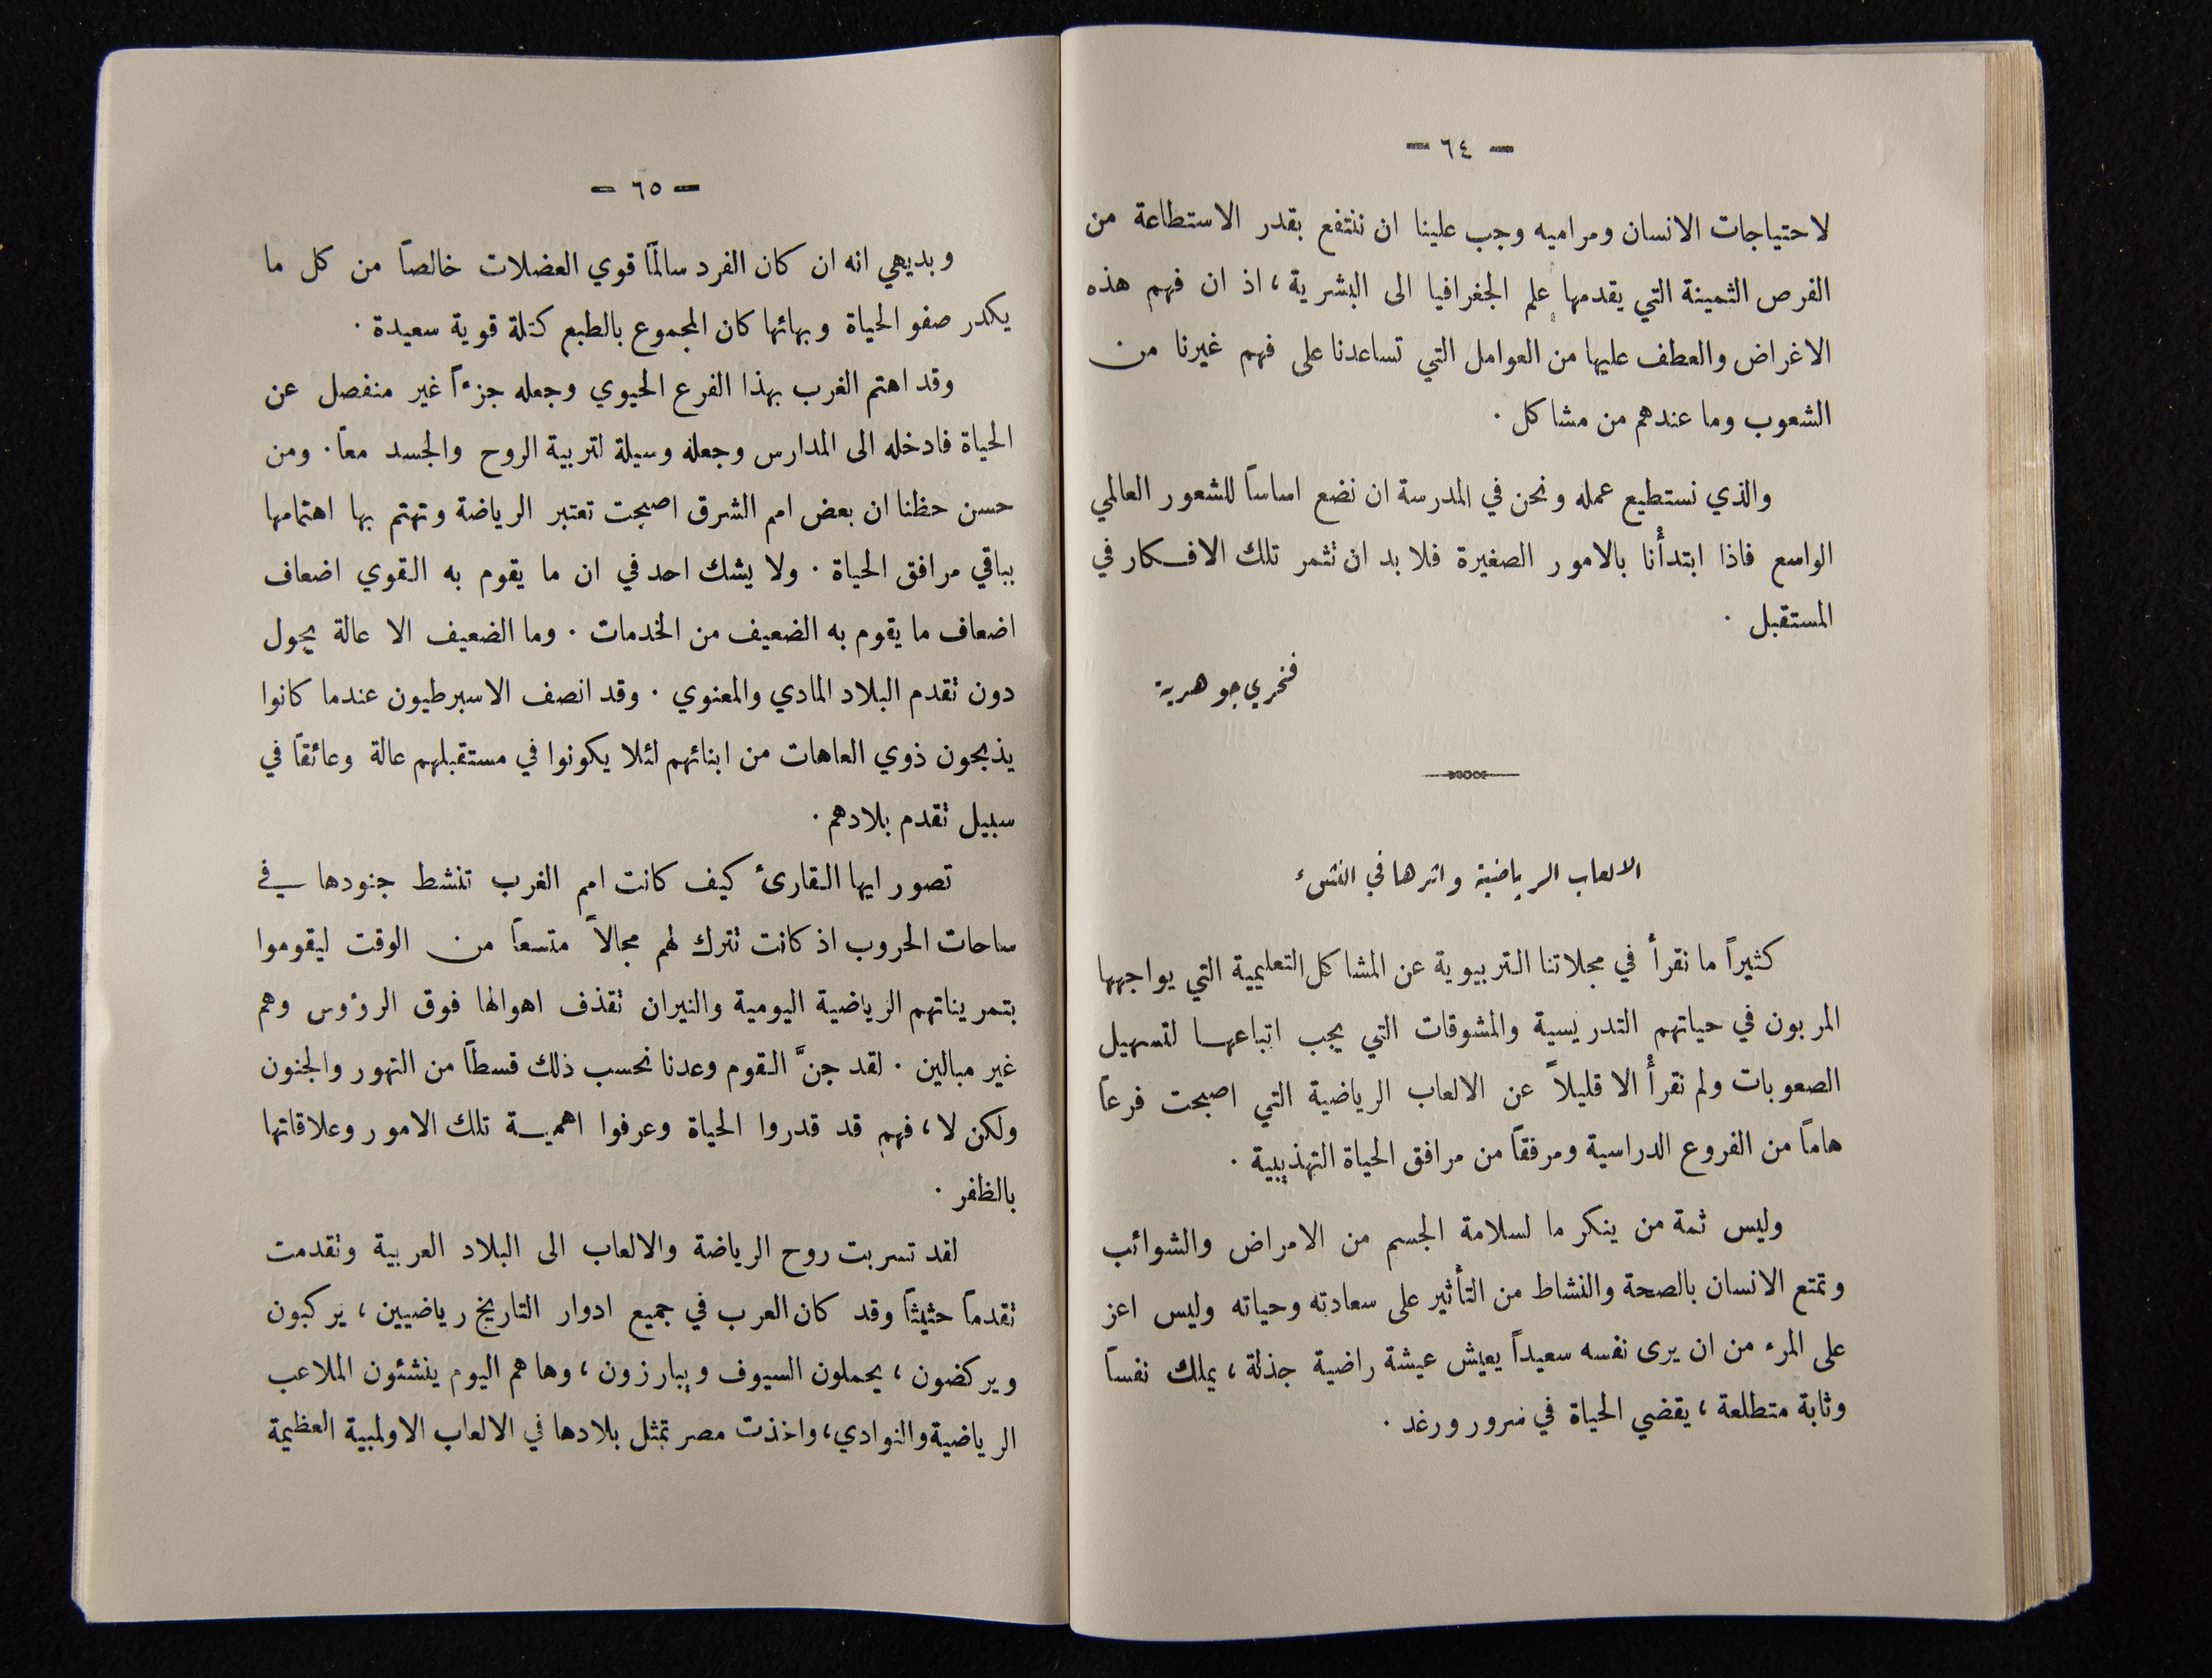 — ٦٤ —
لاحتياجات الانسان ومراميه وجب علينا ان ننتفع بقدر الاستطاعة من
الفرص الثمينة التي يقدمها علم الجغرافيا الى البشرية ، اذ ان فهم هذه
الاغراض والعطف عليها من العوامل التي تساعدنا على فهم غيرنا من
الشعوب وما عندهم من مشاكل .
والذي نستطيع عمله ونحن في المدرسة ان نضع اساساً للشعور العالمي
الواسع فاذا ابتدأنا بالامور الصغيرة فلا بد ان تثمر تلك الافكار في
المستقبل .
فخري جوهرية
الالعاب الرياضية واثرها في النشء
كثيراً ما نقرأ في مجلاتنا التربيوية عن المشاكل التعليمية التي يواجهها
المربون في حياتهم التدريسية والمشوقات التي يجب اتباعها لتسهيل
الصعوبات ولم نقرأ الا قليلاً عن الالعاب الرياضية التي اصبحت فرعاً
هاماً من الفروع الدراسية ومرفقاً من مرافق الحياة التهذيبية .
وليس ثمة من ينكر ما لسلامة الجسم من الامراض والشوائب
وتمتع الانسان بالصحة والنشاط من التأثير على سعادته وحياته وليس اعز
على المرء من ان يرى نفسه سعيداً يعيش عيشة راضية جذلة ، يملك نفساً
وثابة متطلعة ، يقضي الحياة في سرور ورغد .
— ٦٥ —
وبديهي انه ان كان الفرد سالماً قوي العضلات خالصاً من كل ما
يكدر صفو الحياة وبهائها كان المجموع بالطبع كتلة قوية سعيدة .
وقد اهتم الغرب بهذا الفرع الحيوي وجعله جزءاً غير منفصل عن
الحياة فادخله الى المدارس وجعله وسيلة لتربية الروح والجسد معاً . ومن
حسن حظنا ان بعض امم الشرق اصبحت تعتبر الرياضة وتهتم بها اهتمامها
بباقي مرافق الحياة . ولا يشك احد في ان ما يقوم به القوي اضعاف
اضعاف ما يقوم به الضعيف من الخدمات . وما الضعيف الا عالة يحول
دون تقدم البلاد المادي والمعنوي . وقد انصف الاسبرطيون عندما كانوا
يذبحون ذوي العاهات من ابنائهم لئلا يكونوا في مستقبلهم عالة وعائقاً في
سبيل تقدم بلادهم .
تصور ايها القارئ كيف كانت امم الغرب تنشط جنودها في
ساحات الحروب اذ كانت تترك لهم مجالاً متسعاً من الوقت ليقوموا
بتمريناتهم الرياضية اليومية والنيران تقذف اهوالها فوق الرؤوس وهم
غير مبالين . لقد جنَّ القوم وعدنا نحسب ذلك قسطاً من التهور والجنون
ولكن لا ، فهم قد قدروا الحياة وعرفوا اهمية تلك الامور وعلاقاتها
بالظفر .
لقد تسربت روح الرياضة والالعاب الى البلاد العربية وتقدمت
تقدماً حثيثاً وقد كان العرب في جميع ادوار التاريخ رياضيين ، يركبون
ويركضون ، يحملون السيوف ويبارزون ، وها هم اليوم ينشئون الملاعب
الرياضية والنوادي ، واخذت مصر تمثل بلادها في الالعاب الاولمبية العظيمة